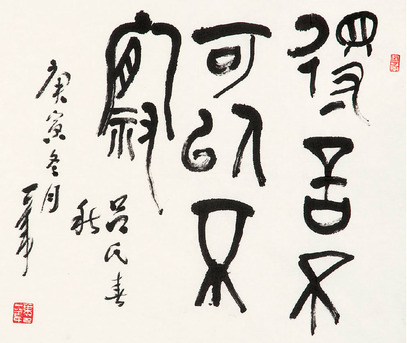 得言不
可以不
察
吕氏春
秋
庚寅冬月